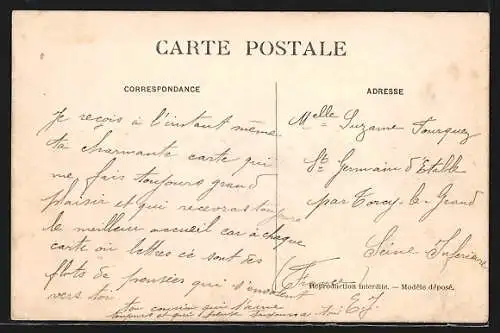 CARTE POSTALE
CORRESPONDANCE
ADRESSE
Je reçois à l'instant même
ta charmante carte qui
me fais toujours grand
plaisir et qui recevras toujours
le meilleur accueil car à chaque
carte ou lettres ce sont des
flots de pensées qui s'envolent
vers toi
ton cousin qui t'aime
toujours et qui pense toujours à toi
E. J.
Melle Suzanne Fourquez
St Germain d'Etable
par Torcy-le-Grand
Seine Inférieure
(France)
Reproduction interdite. — Modèle déposé.